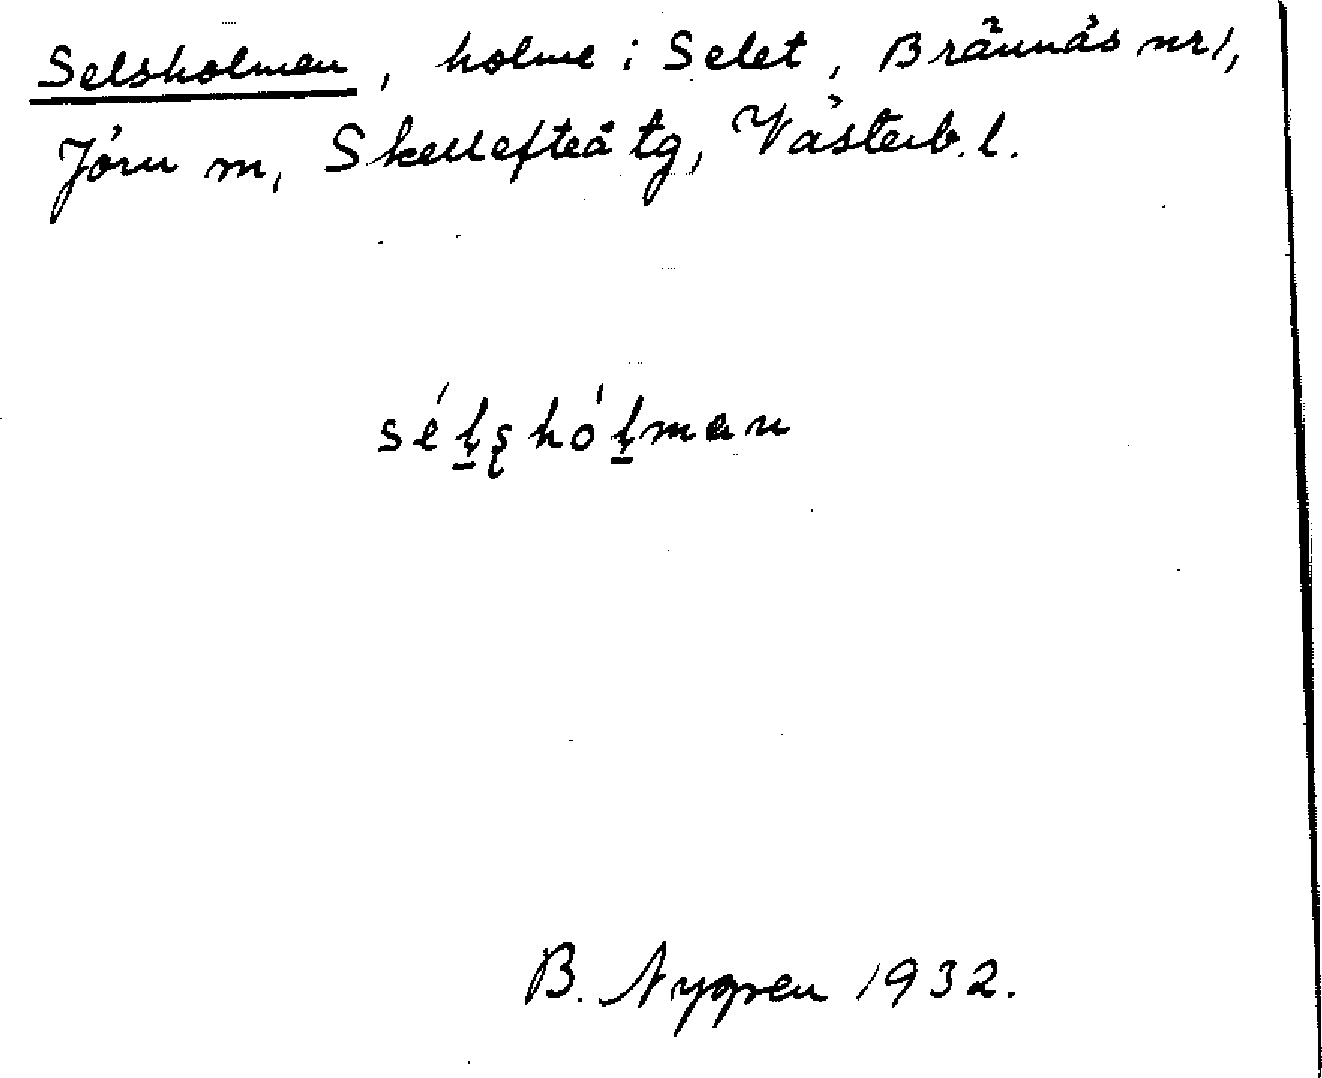 Selsholmen, holme i Selet, Brännäs nr 1,
Jörn m, Skellefteå tg, Västerb. l.
séḷṣhóḷmɐn
B. Nygren 1932.